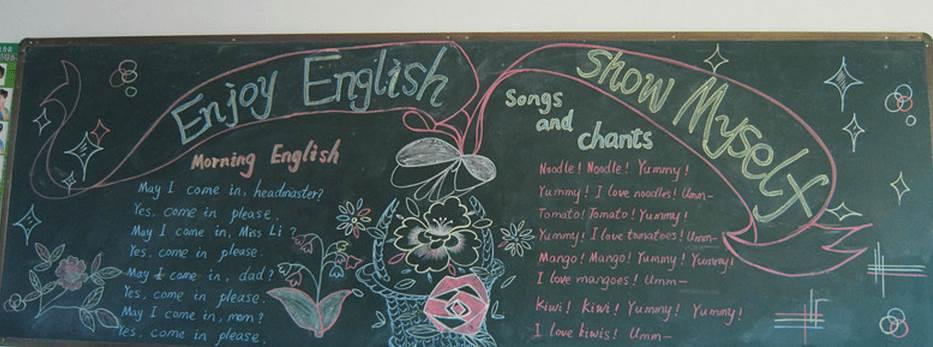 Enjoy English
Show Myself
Morning English
May I come in, headmaster?
Yes, come in please.
May I come in, Miss Li?
Yes, come in please.
May I come in, dad?
Yes, come in please.
May I come in, mom?
Yes, come in please.
Songs
and
chants
Noodle! Noodle! Yummy!
Yummy! I love noodles! Umm—
Tomato! Tomato! Yummy!
Yummy! I love tomatoes! Umm—
Mango! Mango! Yummy! Yummy!
I love mangoes! Umm—
Kiwi! Kiwi! Yummy! Yummy!
I love kiwis! Umm—